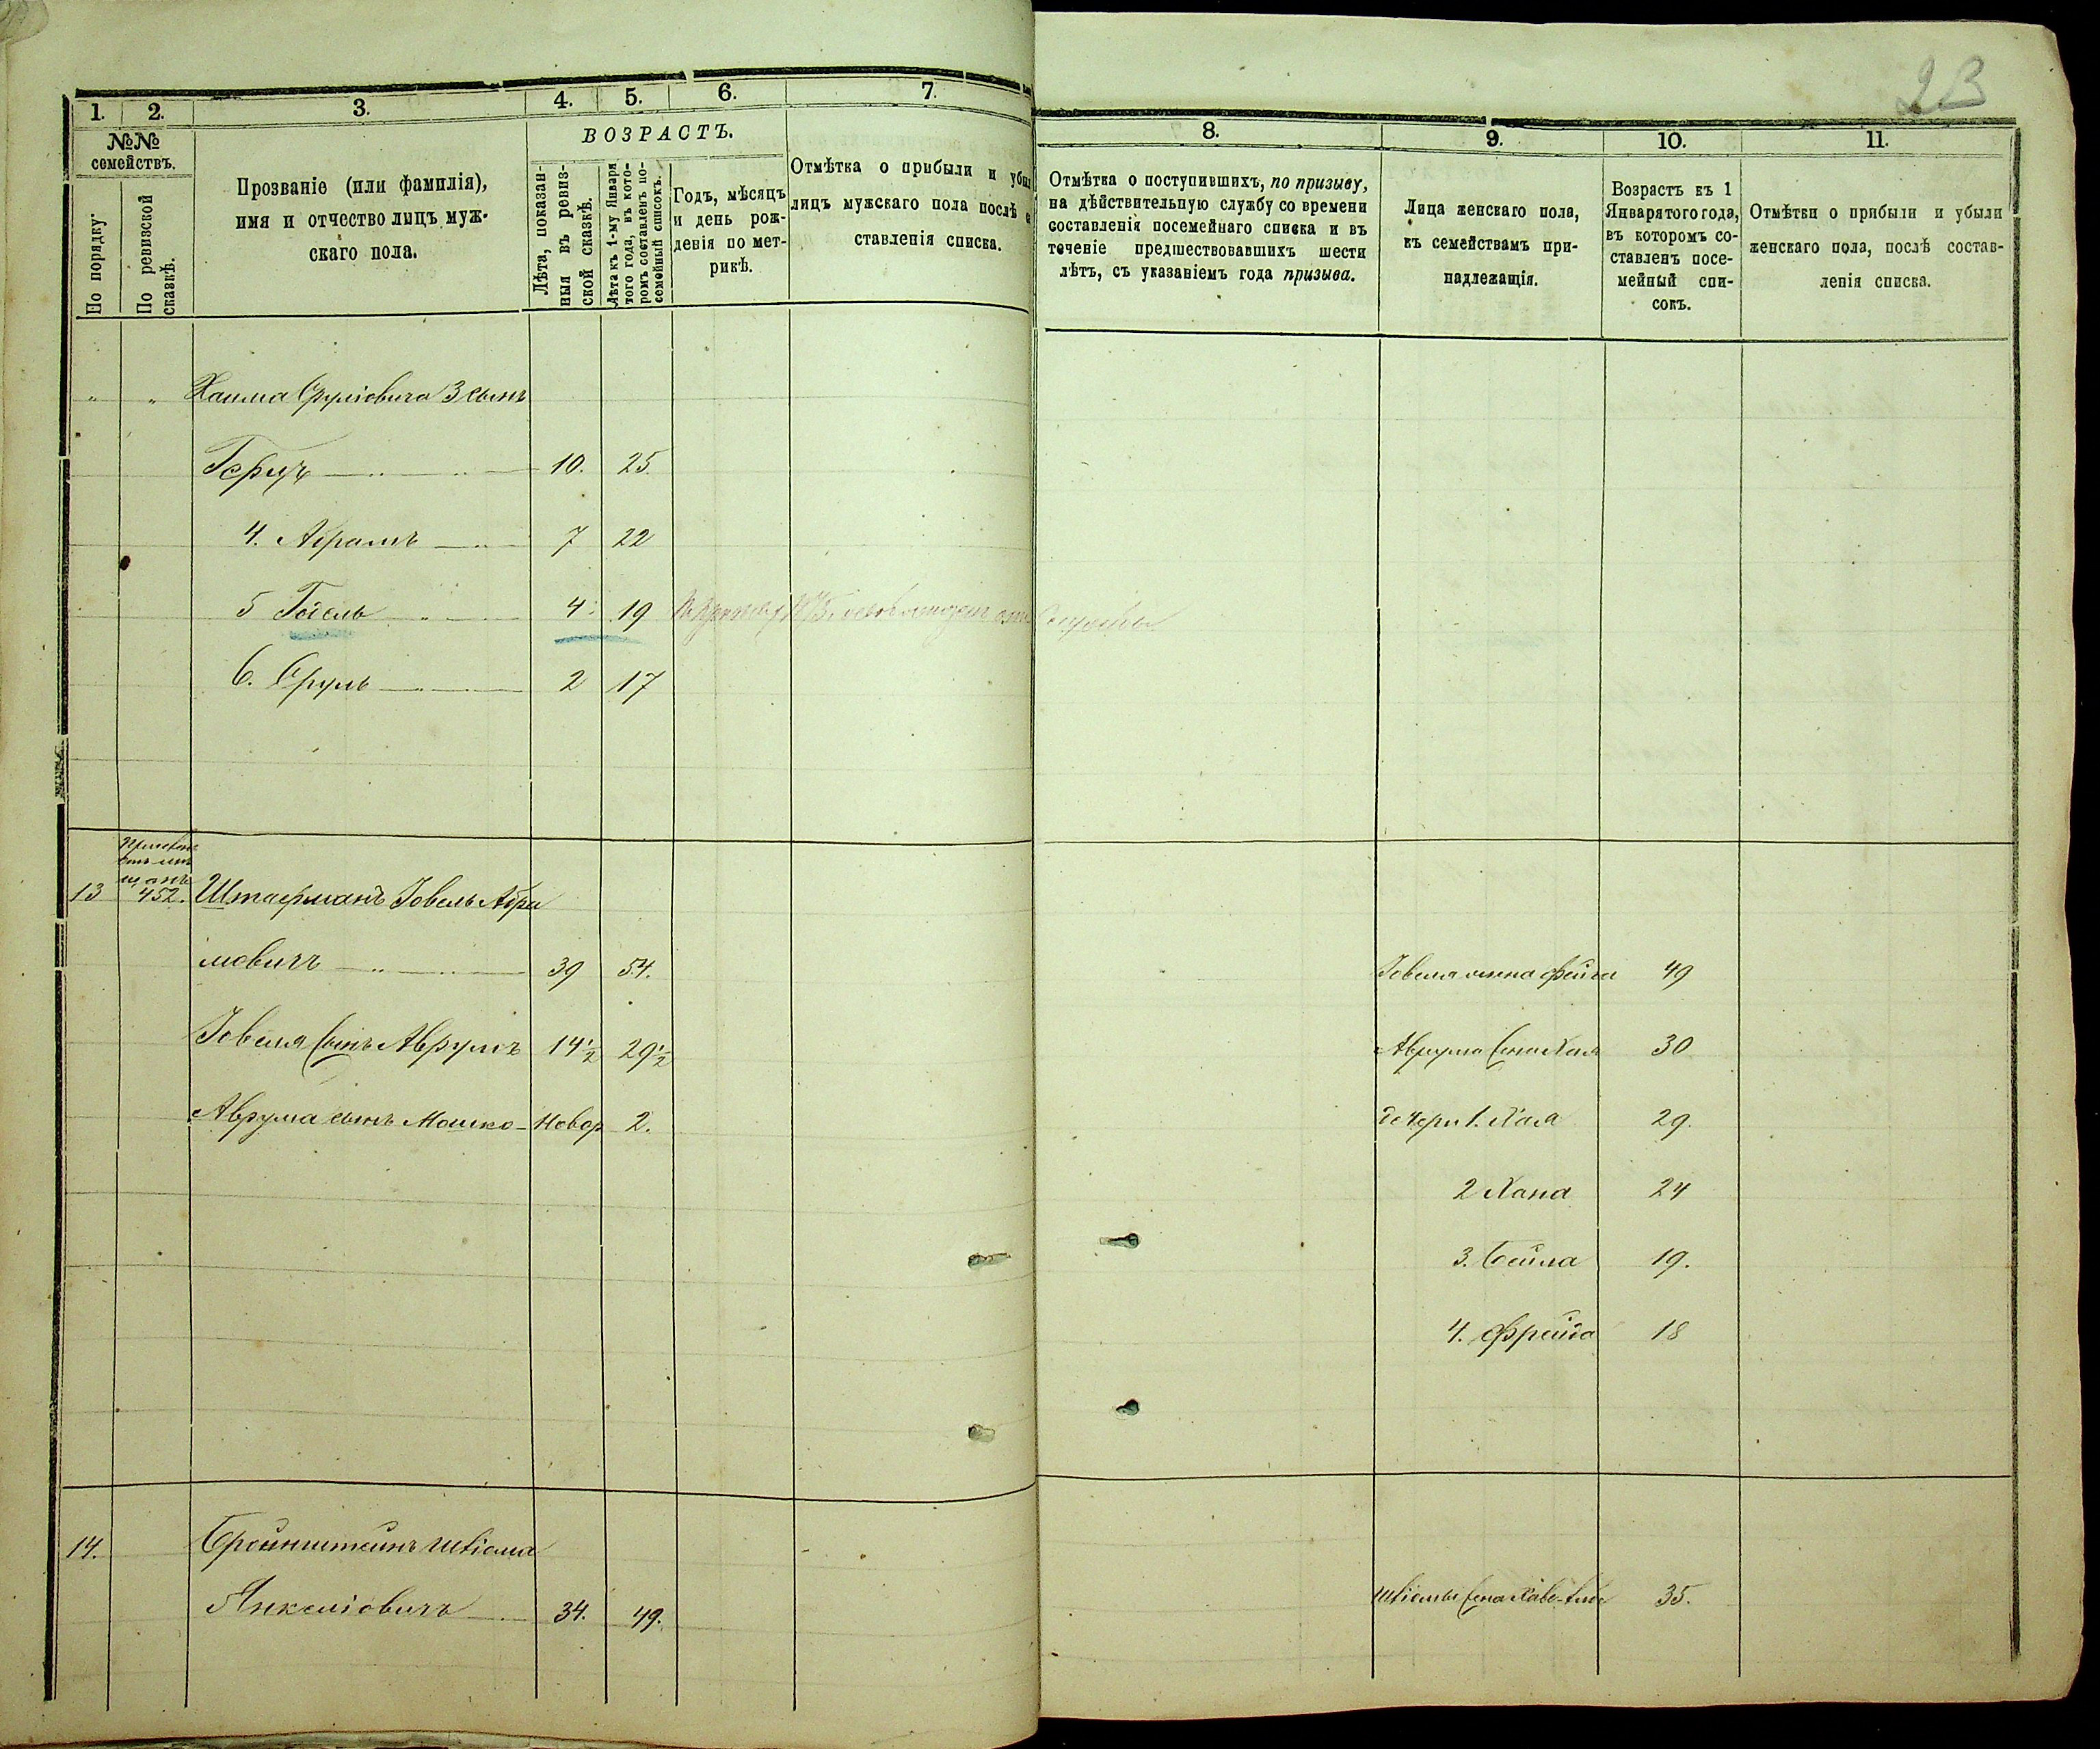 23
1. 2. 3. 4. 5. 6. 7.
№№ семействъ.
По порядку.
По ревизской сказкѣ.
Прозваніе (или фамилія),
имя и отчество лицъ муж-
скаго пола.
ВОЗРАСТЪ.
Лѣта, показан-
ныя въ ревиз-
ской сказкѣ.
Лѣта къ 1-му Января
того года, въ кото-
ромъ составленъ по-
семейный списокъ.
Годъ, мѣсяцъ
и день рож-
денія по мет-
рикѣ.
Отмѣтка о прибыли и убыл
лицъ мужскаго пола послѣ с
ставленія списка.
8. 9. 10. 11.
Отмѣтка о поступившихъ, по призыву,
на дѣйствительную службу со времени
составленія посемейнаго списка и въ
теченіе предшествовавшихъ шести
лѣтъ, съ указаніемъ года призыва.
Лица женскаго пола,
къ семействамъ при-
надлежащія.
Возрастъ къ 1
Января того года,
въ которомъ со-
ставленъ посе-
мейный спи-
сокъ.
Отмѣтки о прибыли и убыли
женскаго пола, послѣ состав-
ленія списка.
" " Хаима Сруліовича 3 сынъ
Герцъ 10. 25.
4. Абрамъ 7 22
5 Гдель 4. 19
6. Сруль 2 17
13 452. Штаерманъ Іовель Абра
мовичъ 39 54. Іовеля жена Фейга 49
Іовеля Сынъ Аврумъ 14½ 29½ Аврума Жена Хая 30
Аврума сынъ Мошко Новор 2. дочери 1. Хая 29.
2 Хана 24
3. Бейла 19.
4. Фрейда 18
14. Бронштейнъ Шліома
Янкеліовичъ 34. 49. Шліомы Жена 35.